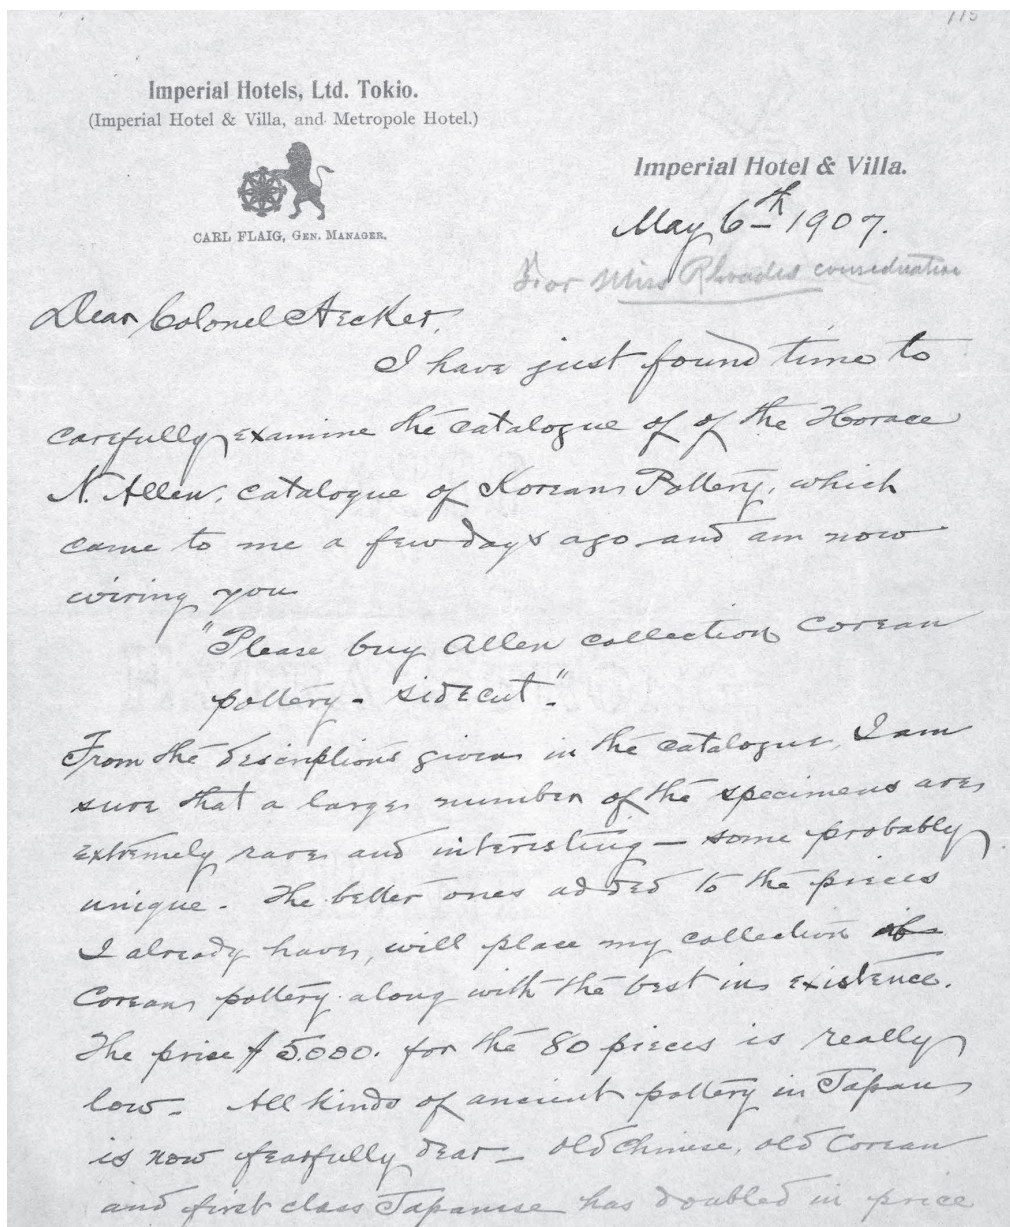 115
Imperial Hotels, Ltd. Tokio.
(Imperial Hotel & Villa, and Metropole Hotel.)
CARL FLAIG, GEN. MANAGER.
Imperial Hotel & Villa.
May 6th 1907.
For Miss Rhoades consideration
Dear Colonel Hecker,
I have just found time to
carefully examine the catalogue of of the Horace
N. Allen, catalogue of Korean Pottery, which
came to me a few days ago and am now
wiring you
"Please buy Allen collection Corean
pottery - sidecut".
From the descriptions given in the catalogue, I am
sure that a large number of the specimens are
extremely rare and interesting — some probably
unique. The better ones added to the pieces
I already have, will place my collection of
Corean pottery along with the best in existence.
The price $5.000. for the 80 pieces is really
low. All kinds of ancient pottery in Japan
is now fearfully dear — old Chinese, old Corean
and first class Japanese has doubled in price